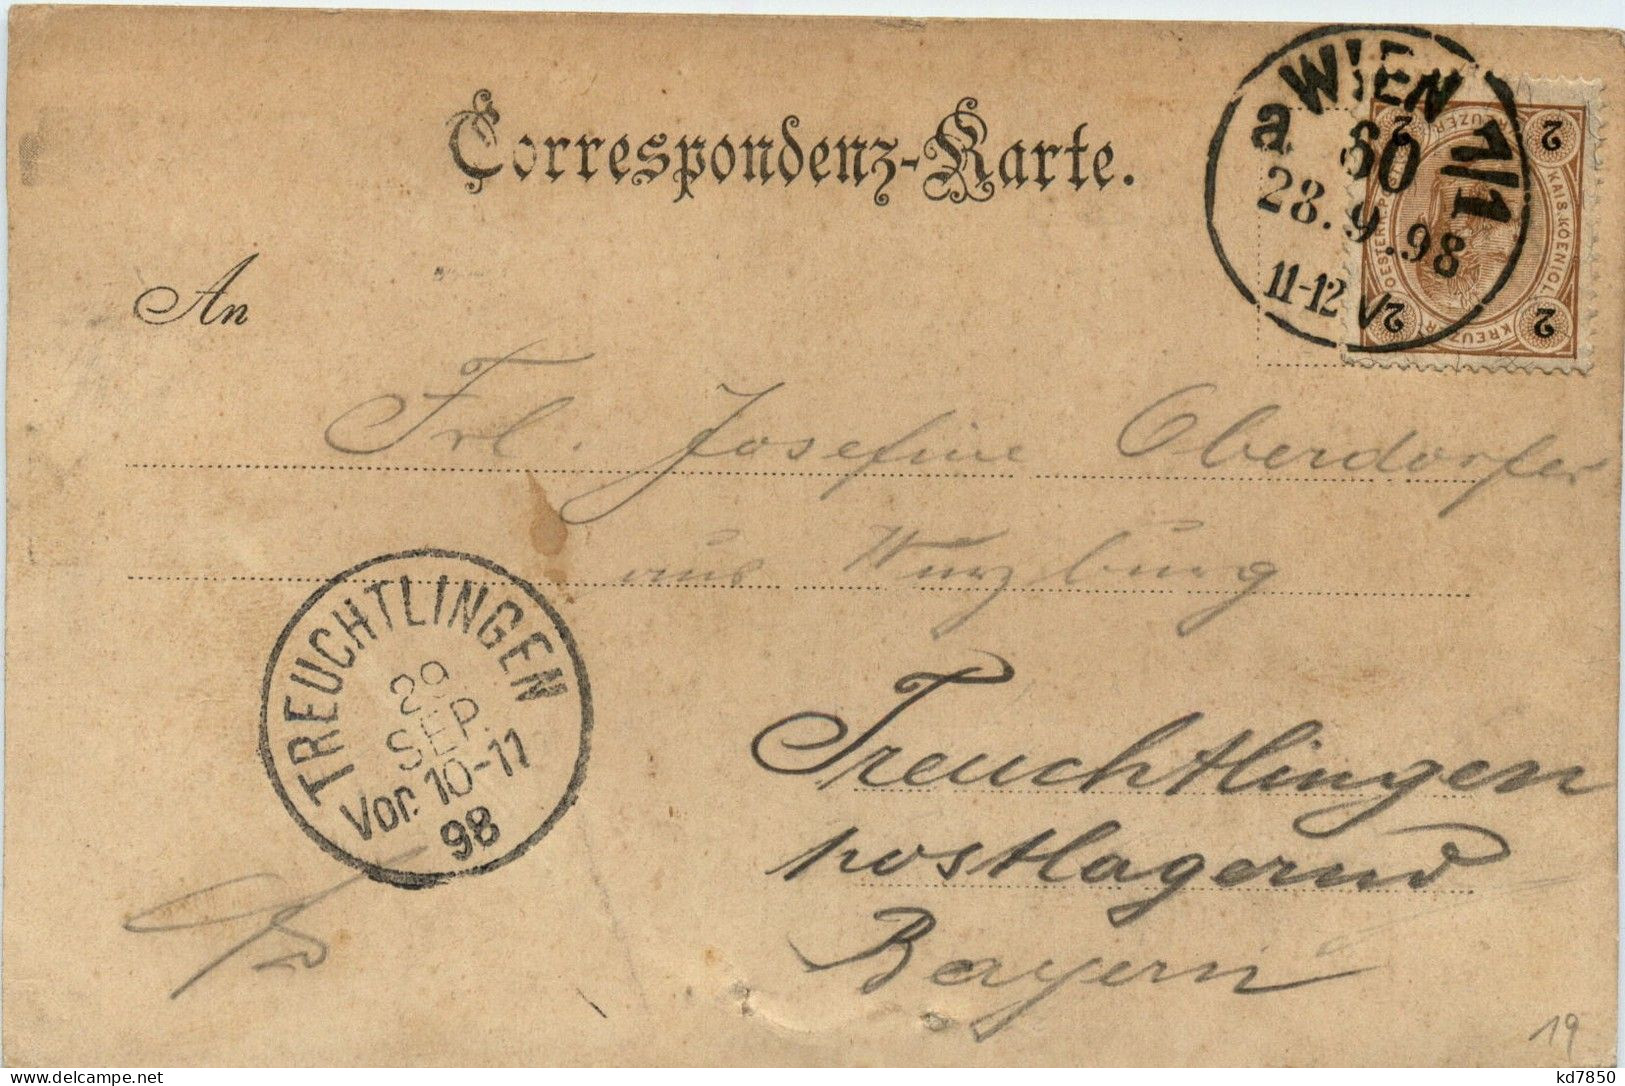 Correspondenz-Karte.
a WIEN 7/1
60
28.9.98
11-12 V
2 2 2 2
KAIS. KOENIGL. OESTERR. POST
KREUZER KREUZER
An
Frl. Josefine Oberdorfer
aus Wurzburg
TREUCHTLINGEN
29
SEP.
Vor. 10-11
98
Treuchtlingen
postlagernd
Bayern
19
kd7850